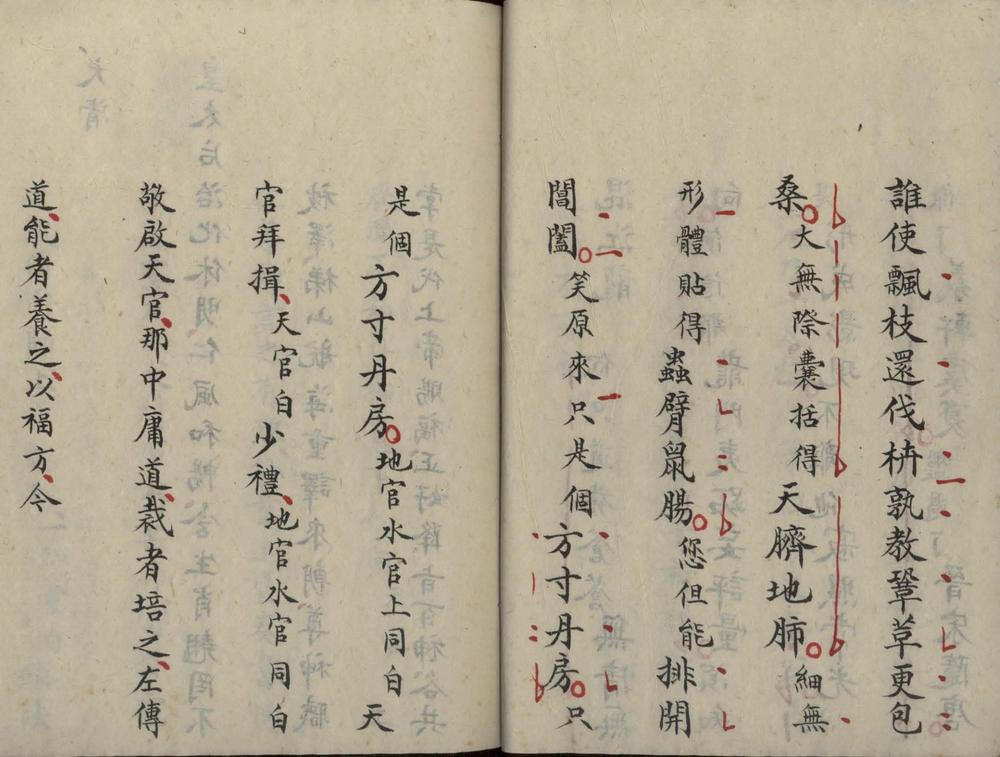 誰使飄枝還伐枿孰教鞏草更包
桑大無際囊括得天臍地肺細無
形體貼得蟲臂鼠腸您但能排開
閶闔笑原來只是個方寸丹房只
是個方寸丹房地官水官上同白天
官拜揖天官白少禮地官水官同白
敬啟天官那中庸道栽者培之左傳
道能者養之以福方今